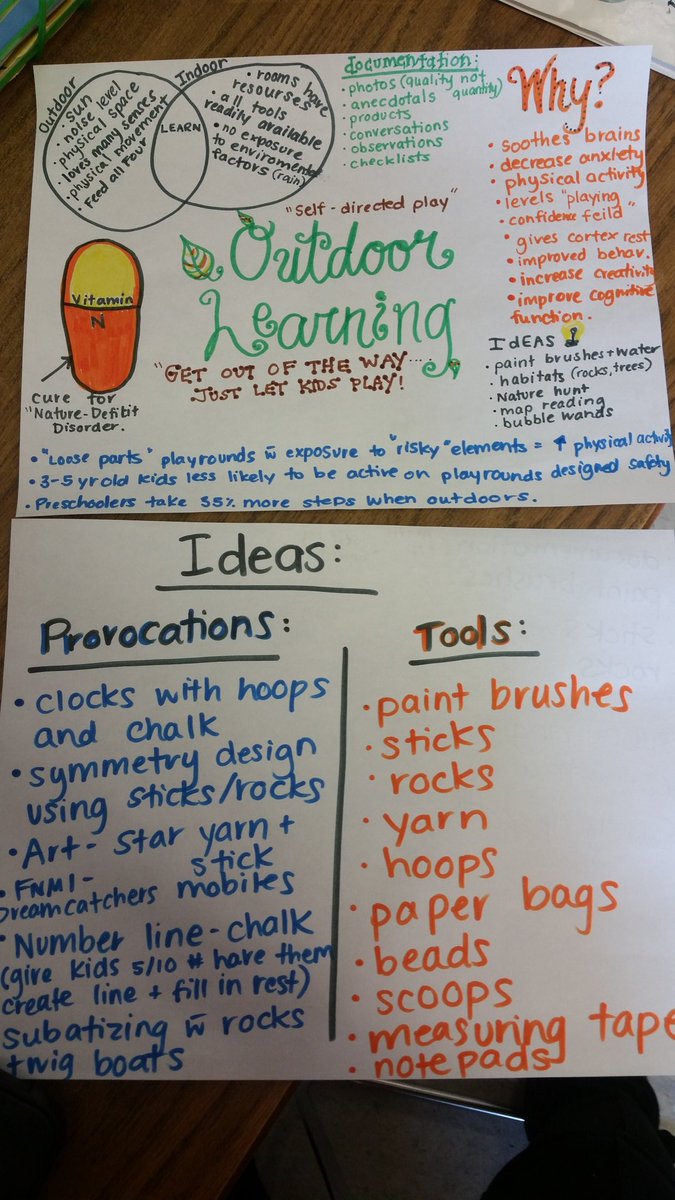 Outdoor
• sun
• noise level
• physical space
• loves many senses
• physical movement
• Feed all four
LEARN
Indoor
• rooms have
resourses
• all tools
readily available
• no exposure
to enviromental
factors (rain)
documentation:
• photos (quality not
quantity)
• anecdotals
• products
• conversations
• observations
• checklists
Why?
• soothes brains
• decrease anxiety
• physical activity
• levels "playing
• confidence feild"
• gives cortex rest
• improved behav.
• increase creativity
• improve cognitive
function.
"self-directed play"
Outdoor
Learning
"GET OUT OF THE WAY....
JUST LET KIDS PLAY!
Vitamin
N
cure for
"Nature-Defibit
Disorder.
IdEAS
• paint brushes + water
• habitats (rocks, trees)
• Nature hunt
• map reading
• bubble wands
• "Loose parts" playrounds w̄ exposure to "risky" elements = ↑ physical activity
• 3-5 yr old kids less likely to be active on playrounds designed safety
• Preschoolers take 35% more steps when outdoors.
Ideas:
Provocations:
• clocks with hoops
and chalk
• symmetry design
using sticks/rocks
• Art - star yarn +
stick
• FNMI -
Dreamcatchers mobiles
• Number line - chalk
(give kids 5/10 # have them
create line + fill in rest)
subatizing w̄ rocks
twig boats
Tools:
• paint brushes
• sticks
• rocks
• yarn
• hoops
• paper bags
• beads
• scoops
• measuring tape
• note pads